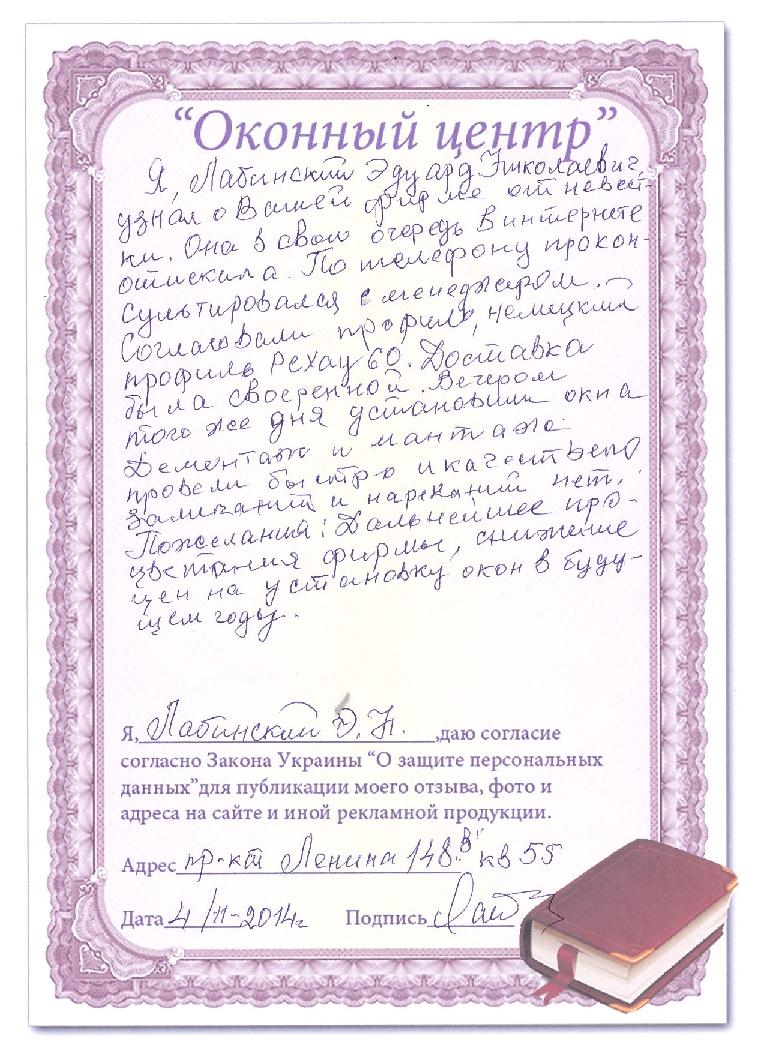 “Оконный центр”
Я, Лабинский Эдуард Николаевич,
узнал о Вашей фирме от невест-
ки. Она в свою очередь в интернете
отискала. По телефону прокон-
сультировался с менеджером.
Согласовали профиль, немецкий
профиль Рехау 60. Доставка
была своеренной. Вечером
того же дня установили окна
Дементаж и мантаж
провели быстро и качествено
замечаний и нареканий нет.
Пожелания: Дальнейшее про-
цветания фирмы, снижение
цен на установку окон в буду-
щем годы.
Я, Лабинский Э. Н. ,даю согласие
согласно Закона Украины “О защите персональных
данных”для публикации моего отзыва, фото и
адреса на сайте и иной рекламной продукции.
Адрес пр-кт Ленина 148 "В" кв 55
Дата 4/11-2014г Подпись